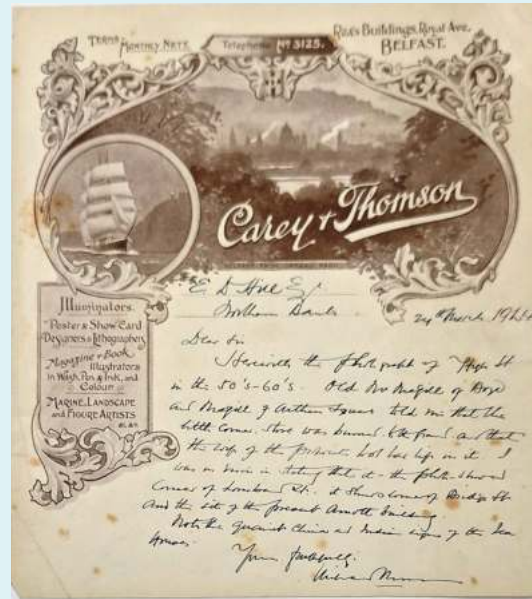 TERMS
MONTHLY NETT.
Telephone No 3125.
Rea's Buildings, Royal Ave,
BELFAST.
Carey & Thomson
Illuminators.
Poster & Show Card
Designers & Lithographers
Magazine & Book
Illustrators
In Wash, Pen & Ink, and
Colour
MARINE, LANDSCAPE
and FIGURE ARTISTS
&c. &c.
E D Hill Esq
Northern Bank
24th March 192
Dear Sir
Herewith the photograph of High St
in the 50's-60's. Old Mr Magill of
and Magill of Arthur Square told me that the
little corner store was burned and that
the of the present
was in stating that the photo showed
corner of Lombard St. it shows corner of Bridge St
and the site of the present Arnott building.
Note the quaint Chinese and Indian signs of the Tea
Houses.
Yours faithfully